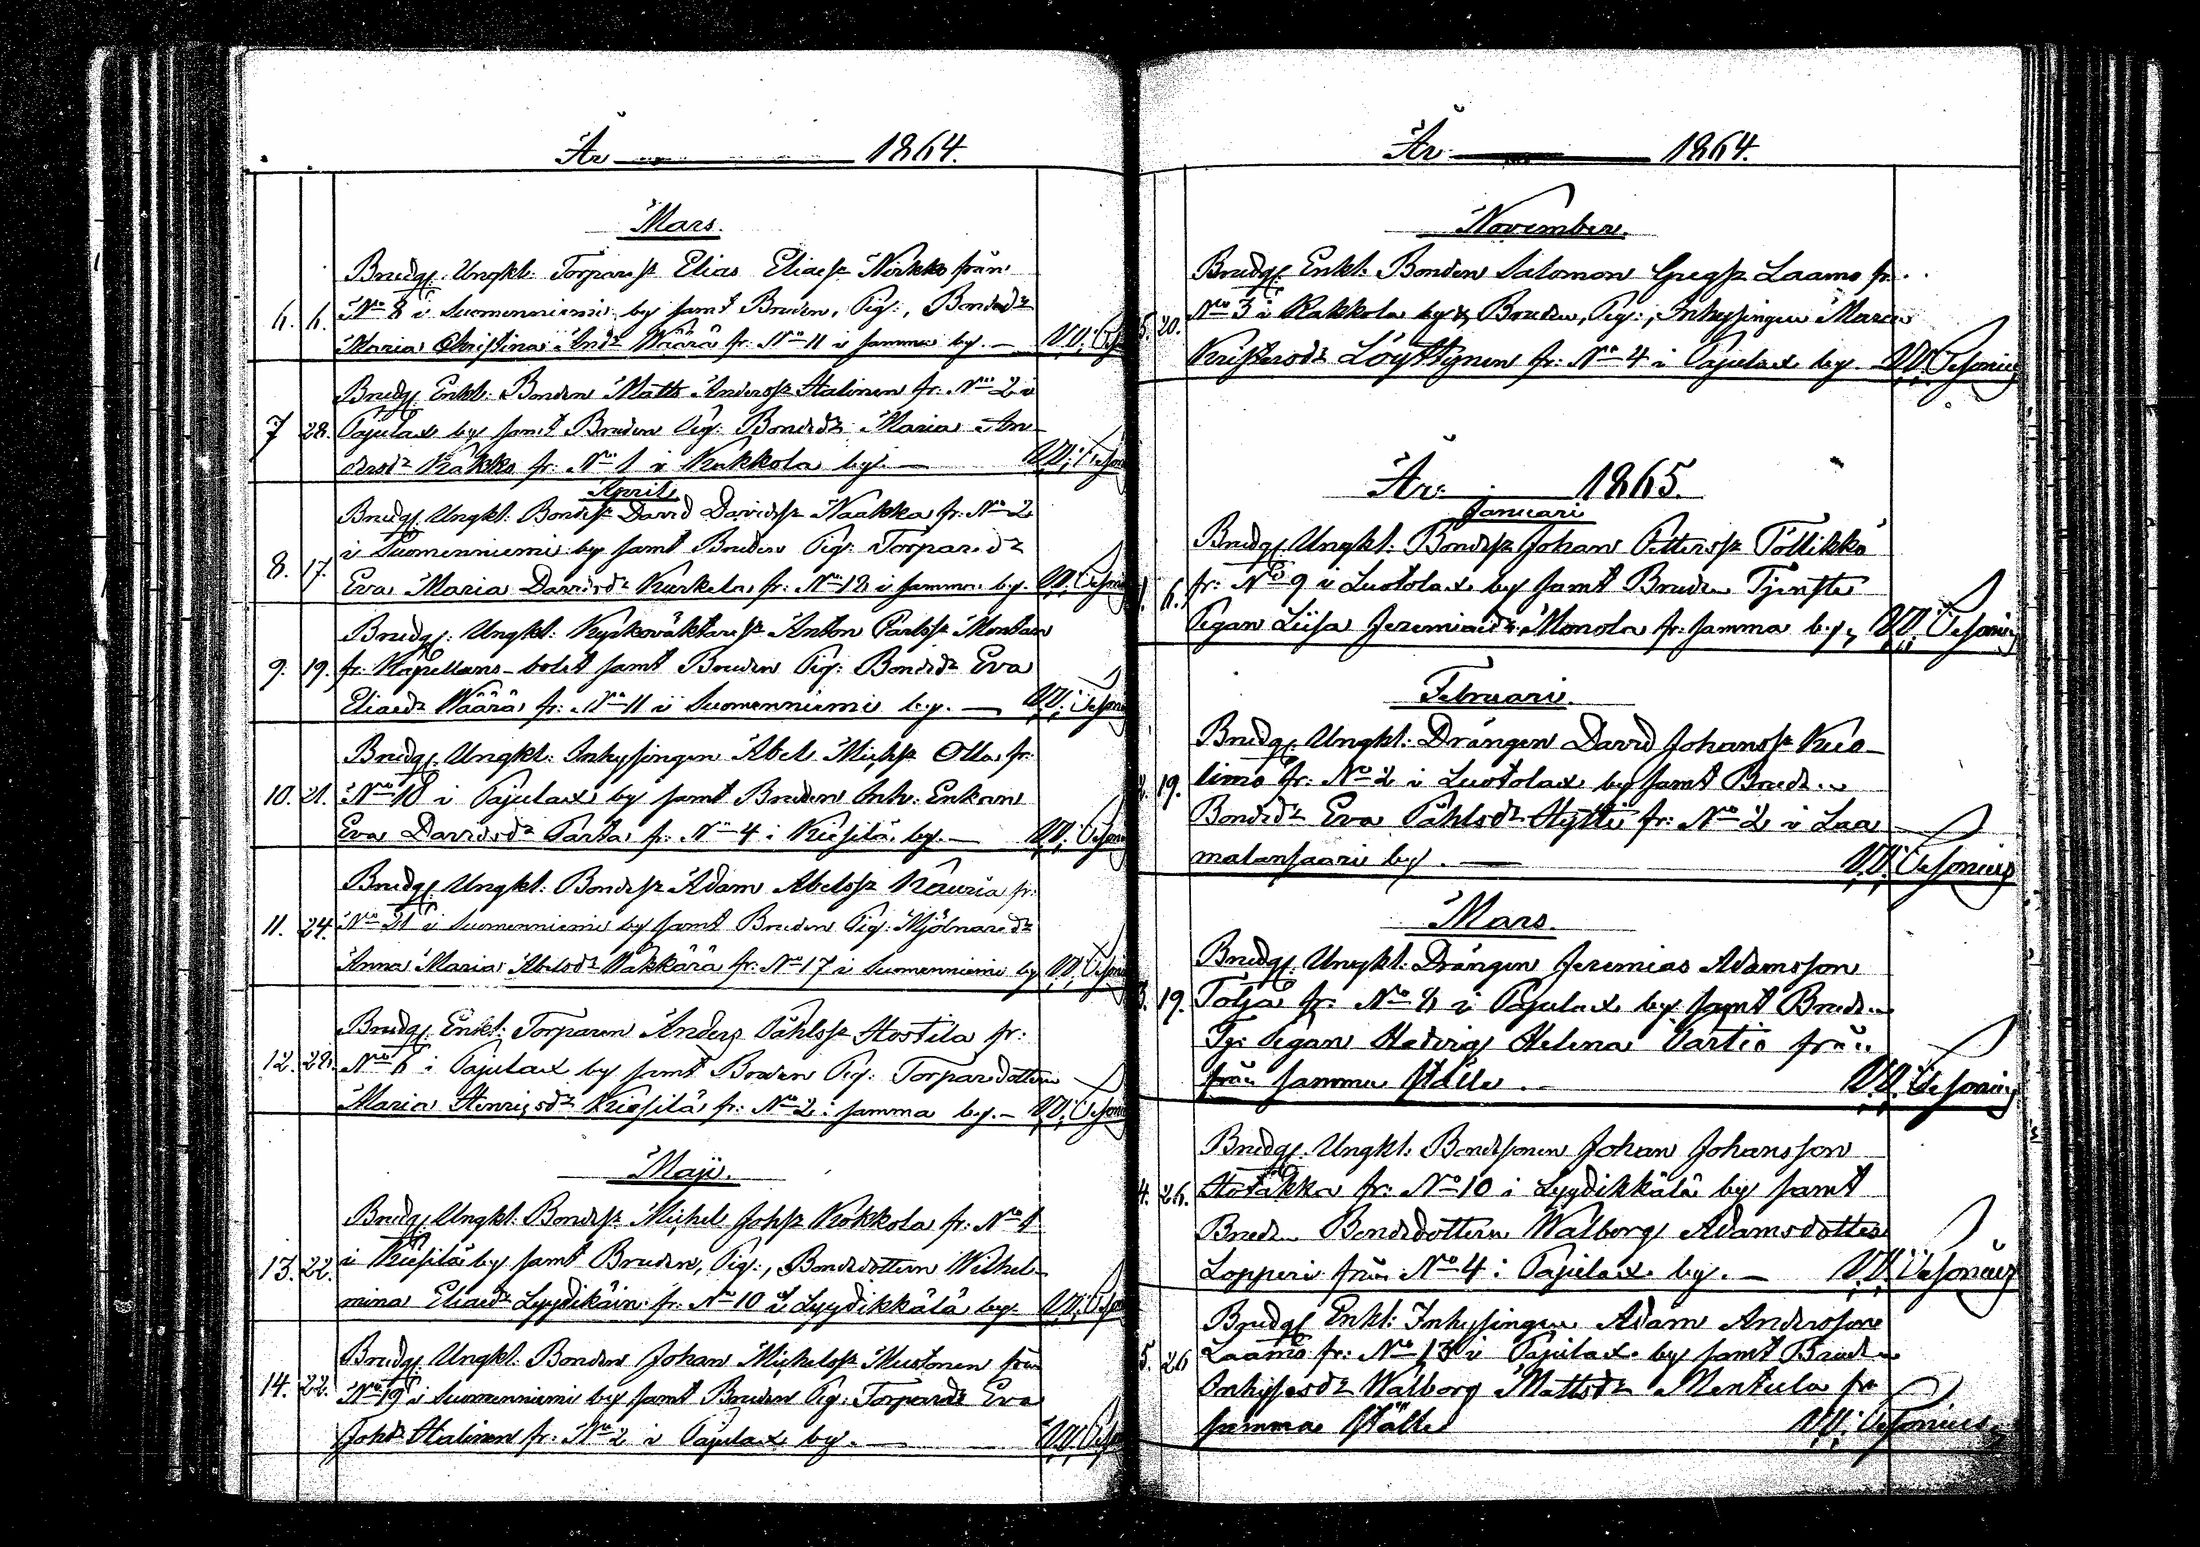 År 1864.
Mars.
Brudg. Ungkl. Torparess Elias Eliaess Nirkko från
6. 6. No 8 i Suomenniemi by samt Bruden, Pig:, Bondedr
Maria Christina Andr Wäärä fr. No 11 i samma by. — V.V.
Brudg. Enkl. Bonden Matts Anderss Halinen fr. No 2 i
7 28. Pajulax by samt Bruden Pig: Bondedr Maria An
dersdr Kakko fr. No 1 i Kakkola by. — V.V.
April
Brudg. Ungkl. Bondess David Davidss Naakka fr. No 2
8. 17. i Suomenniemi by samt Bruden Pig: Torparedr
Eva Maria Davidsdr Kurkela fr. No 12 i samma by. V.V.
Brudg. Ungkl. Kyrkoväktaress Anton Carlss Montan
9. 19. fr. Kapellans-bolet samt Bruden Pig: Bondedr Eva
Eliaedr Wäärä fr. No 11 i Suomenniemi by. — V.V.
Brudg. Ungkl. Inhysingen Abel Michss Olla fr.
10. 21. No 18 i Pajulax by samt Bruden Inh. Enkan
Eva Davidsdr Parta fr. No 4 i Kiesilä by. — V.V.
Brudg. Ungkl. Bondess Adam Abelss Kauria fr.
11. 24. No 21 i Suomenniemi by samt Bruden Pig: Mjölnaredr
Anna Maria Abelsdr Wakkärä fr. No 17 i Suomenniemi by V.V.
Brudg. Enkl: Torparen Anders Påhlss Hostila fr:
12. 28. No 6 i Pajulax by samt Bruden Pig: Torparedottern
Maria Henricsdr Kiesilä fr: No 2 i samma by. — V.V.
Maji.
Brudg. Ungkl. Bondess Michel Johss Kokkola fr. No 1
13. 22. i Kiesilä by samt Bruden, Pig:, Bondedottern Wilhel-
mina Eliaedr Lyydikäin. fr. No 10 i Lyydikkälä by. V.V.
Brudg. Ungkl. Bonden Johan Michelss Mustonen från
14. 22. No 19 i Suomenniemi by samt Bruden Pig: Torparedr Eva
Johdr Halinen fr. No 2 i Pajulax by. — V.V.
År 1864.
November.
Brudg. Enkl: Bonden Salomon Gregss Laamo fr.
20. No 3 i Kakkola by & Bruden, Pig:, Inhysingen Maria
Kristersdr Löyttynen fr: No 4 i Pajulax by. V.V.
År 1865.
Januari
Brudg. Ungkl. Bondess Johan Petterss Pöllikkö
1. 6. fr: No 9 i Luotolax by samt Bruden Tjenste
Pigan Lisa Jeremiaedr Monola fr. samma by, V.V.
Februari.
Brudg. Ungkl: Drängen David Johanss Kuo-
2. 19. limo fr. No 2 i Luotolax by samt Bruden
Bondedr Eva Påhlsdr Hytti fr: No 2 i Laa
malansaari by. — V.V.
Mars.
Brudg. Ungkl: Drängen Jeremias Adamsson
3. 19. Tolja fr. No 8 i Pajulax by samt Bruden
Tj: Pigan Hedvig Helena Vartio från
från samma ställe. — V.V.
Brudg. Ungkl. Bondesonen Johan Johansson
4. 26. Hotakka fr: No 10 i Lyydikkälä by samt
Bruden Bondedottern Walborg Adamsdotter
Lopperi från No 4 i Pajulax by. — V.V.
Brudg. Enkl: Inhysingen Adam Andersson
5. 26 Laamo fr: No 13 i Pajulax by samt Bruden
Inhysesdr Walborg Mattsdr Mentula fr
samma ställe V.V.